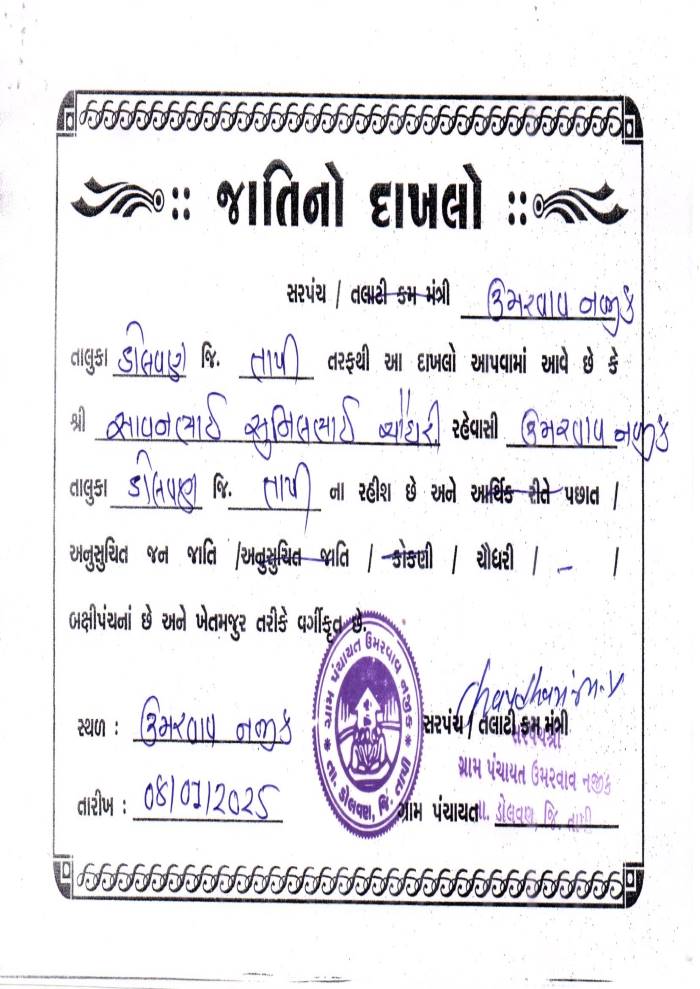 :: જાતિનો દાખલો ::
સરપંચ / તલાટી કમ મંત્રી ઉમરવાવ નજીક
તાલુકા ડોલવણ જિ. તાપી તરફથી આ દાખલો આપવામાં આવે છે કે
શ્રી સાવનભાઈ સુનિલભાઈ ચૌધરી રહેવાસી ઉમરવાવ નજીક
તાલુકા ડોલવણ જિ. તાપી ના રહીશ છે અને આર્થિક રીતે પછાત /
અનુસુચિત જન જાતિ /અનુસુચિત જાતિ / કોકણી / ચૌધરી / - /
બક્ષીપંચનાં છે અને ખેતમજુર તરીકે વર્ગીકૃત છે.
ગ્રામ પંચાયત ઉમરવાવ નજીક
* તા. ડોલવણ, જિ. તાપી *
સ્થળ : ઉમરવાવ નજીક
સરપંચ / તલાટી કમ મંત્રી
સરપંચશ્રી
ગ્રામ પંચાયત ઉમરવાવ નજીક
તારીખ : 08/07/2025
ગ્રામ પંચાયત
તા. ડોલવણ, જિ. તાપી